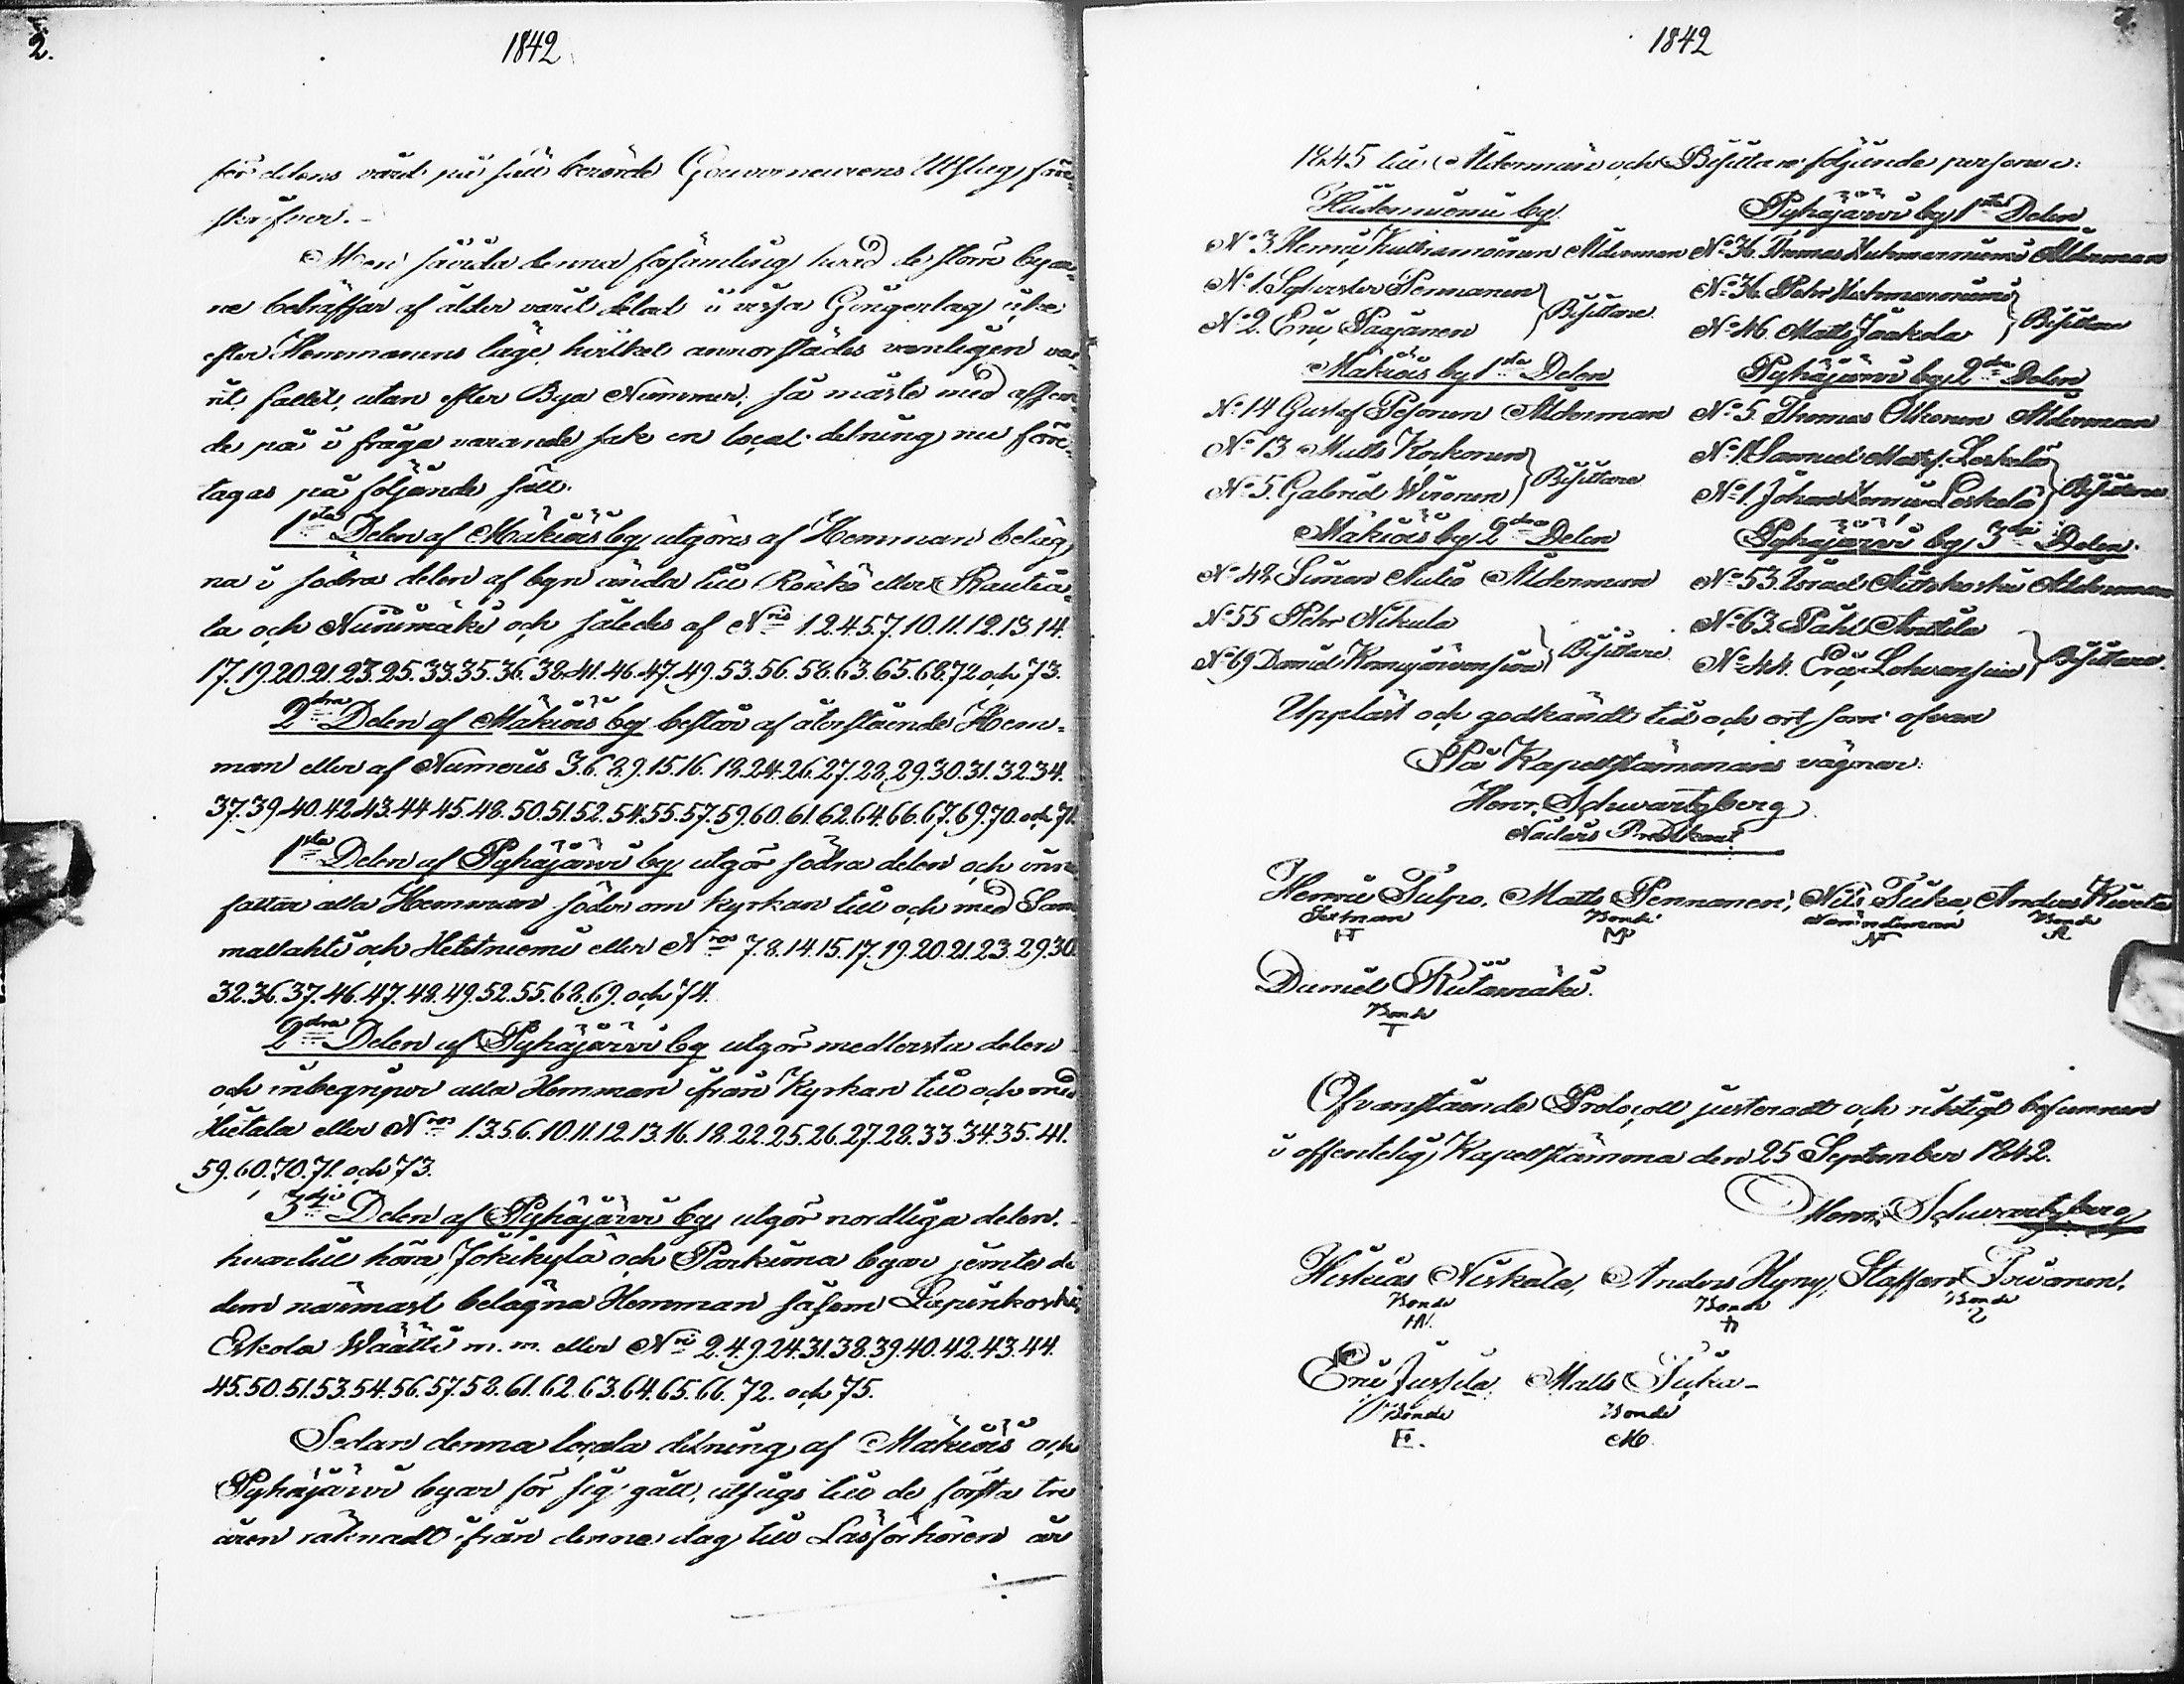 2.
1842
för detens vård på sätt berörde Gouverneurens Utslag före-
skrifver.-
Men såvida denna församling hvad de större byar-
ne beträffar af ålder varit delad i vissa Gingerlag icke
efter Hemmanens läge, hvilket annorstädes vanligen va-
rit fallet, utan efter Bya Nummer; så måste med afseen-
de på i fråga varande sak en local delning nu före-
tagas på följande sätt.
1sta Delen af Mäkiöis by utgöres af Hemman beläg-
na i södra delen af byn ända till Rönkö eller Rautia-
la och Niinimäki och således af Nris 1.2.4.5.7.10.11.12.13.14.
17.19.20.21.23.25.33.35.36.38.41.46.47.49.53.56.58.63.65.68.72 och 73.
2dra Delen af Mäkiöis by består af återstående Hem-
man eller af Numeris 3.6.8.9.15.16.18.24.26.27.28.29.30.31.32.34.
37.39.40.42.43.44.45.48.50.51.52.54.55.57.59.60.61.62.64.66.67.69.70. och 71.
1sta Delen af Pyhäjärvi by utgör södra delen och inne-
fattar alla Hemman söder om kyrkan till och med Sam-
mallahti och Hietaniemi eller Nros 7.8.14.15.17.19.20.21.23.29.30.
32.36.37.46.47.48.49.52.55.68.69. och 74.
2dra Delen af Pyhäjärvi by utgör medlersta delen
och inbegriper alla Hemman ifrån Kyrkan till och med
Hietala eller Nros 1.3.5.6.10.11.12.13.16.18.22.25.26.27.28.33.34.35.41.
59.60.70.71. och 73.
3dje Delen af Pyhäjärvi by utgör nordliga delen.
hvartill höra Jokikylä och Parkima byar jemte de
dem närmast belägna Hemman såsom Lapinkoski,
Eskola Waätti m.m. eller Nri 2.4.9.24.31.38.39.40.42.43.44.
45.50.51.53.54.56.57.58.61.62.63.64.65.66.72. och 75.
Sedan denna locala delning af Mäkiöis och
Pyhäjärvi byar för sig gått, utsågs till de första tre
åren räknadt ifrån denna dag till Läsförhören år
1842
1845 till Åldermän och Bisittare följande personer:
Hiidenniemi by
Pyhäjärvi by 1sta Delen
No 3. Henric Kulliamoinen Ålderman
No 36. Thomas Huhmarniemi Ålderman
No 1. Sylvester Pennanen
No 2. Eric Paajanen
Bisittare
No 36. Pehr Huhmarniemi
No 46. Matts Jaakola
Bisittare
Mäkiöis by 1sta Delen
Pyhäjärvi by 2dra Delen
No 14 Gustaf Pesonen Ålderman
No 5. Thomas Olkonen Ålderman
No 13 Matts Korkonen
No 5. Gabriel Wironen
Bisittare
No 1. Samuel Matts. Leskelä
No 1. Johan Henric Leskelä
Bisittare
Mäkiöis by 2dra Delen
Pyhäjärvi by 3dje Delen
No 48 Simon Autio Ålderman
No 53. Israel Aittokoski Ålderman
No 55 Pehr Nikula
No 69 Daniel Komujärvensuu
Bisittare
No 63. Påhl Anttila
No 44. Eric Lohvansuu
Bisittare.
Uppläst och godkändt tid och ort som ofvan
På Kapellstämmans vägnar:
Henr. Schwartzberg
Nådårs Predikant
Henric Tulpo, Matts Pennanen, Nils Tiika, Anders Kivelä
Sexman Bonde Nämndeman Bonde
HT MP NT A
Daniel Riitamäki.
Bonde
T
Ofvanstående Protocoll justeradt och riktigt befunnen
i offentelig Kapellstämma den 25 September 1842.
Henr. Schwartzberg
Hiskias Niskala, Anders Hyny, Staffan Toivanen,
Bonde Bonde Bonde
HN.
Eric Jussila. Matts Tiika-
Bonde Bonde
E. M.